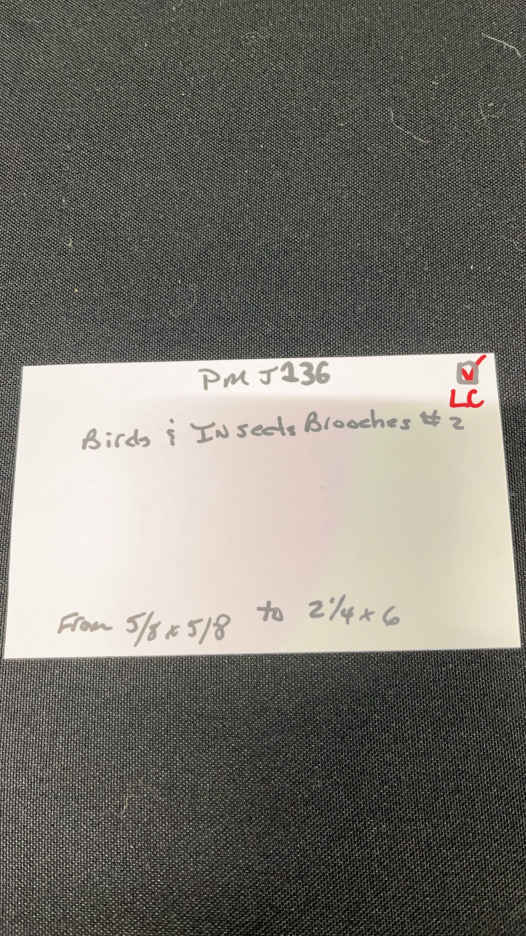 PM J136
LC
Birds & INsects Brooches # 2
From 5/8 x 5/8 to 2 1/4 x 6